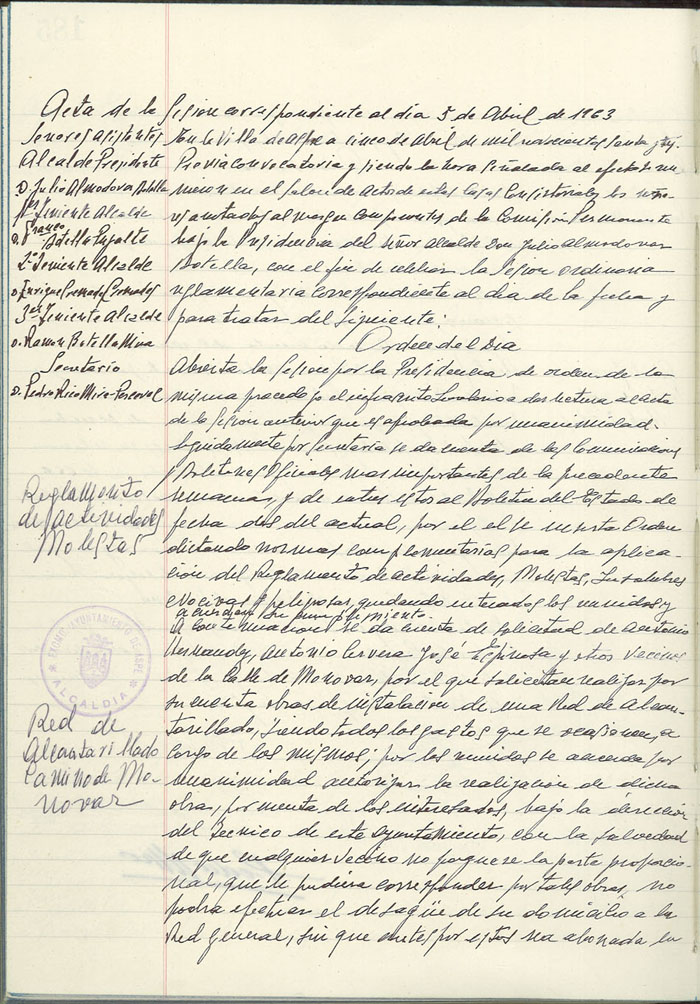 Acta de la Sesion correspondiente al dia 5 de Abril de 1963
Señores asistentes
Alcalde Presidente
D. Julio Almodovar Botella
1er Teniente Alcalde
D. Franco Botella Pujalte
2º Teniente Alcalde
D. Enrique Cremades Cremades
3er Teniente Alcalde
D. Ramon Botella Mira
Secretario
D. Pedro Rico Mira-Perceval
En la Villa de Aspe a cinco de Abril de mil novecientos sesenta y tres.
Previa convocatoria y siendo la hora señalada al efecto se reu
nieron en el Salon de Actos de estas Casas Consistoriales los seño-
res anotados al margen componentes de la Comision Permanente
bajo la Presidencia del señor alcalde Don Julio Almodovar
Botella, con el fin de celebrar la Sesion ordinaria
reglamentaria correspondiente al dia de la fecha y
para tratar del siguiente:
Orden del Dia
Abierta la Sesion por la Presidencia, de orden de la
misma procedo yo el infrascrito Secretario a dar lectura al acta
de la Sesion anterior que es aprobada por unanimidad.
Seguidamente por Secretaria se da cuenta de las Comunicaciones
y Boletines Oficiales mas importantes de la precedente
semana, y de entre estos al Boletin del Estado de
fecha dos del actual, por el el se inserta Orden
dictando normas complementarias para la aplica-
cion del Reglamento de actividades, Molestas, Insalubres
Nocivas y peligrosas, quedando enterados los reunidos y
acuerdan su cumplimiento.
Reglamento
de actividades
Molestas
A continuacion se da cuenta de solicitud de Antonio
Hernandez, Antonio Cervera, José Espinosa y otros vecinos
de la Calle de Monovar, por el que solicitan realizar por
su cuenta obras de instalacion de una Red de Alcan-
tarillado, siendo todos los gastos que se ocasionen, a
cargo de los mismos; por los reunidos se acuerda por
unanimidad autorizar la realizacion de dicha
obra, por cuenta de los interesados, bajo la direccion
del Tecnico de este Ayuntamiento, con la salvedad
de que cualquier vecino no pagase la parte proporcio-
nal, que le pudiera corresponder por tales obras, no
podra efectuar el desagüe de su domicilio a la
Red general, sin que antes por estos sea abonada la
EXCMO. AYUNTAMIENTO DE ASPE
ALCALDIA
Red de
Alcantarillado
Camino de Mo-
novar